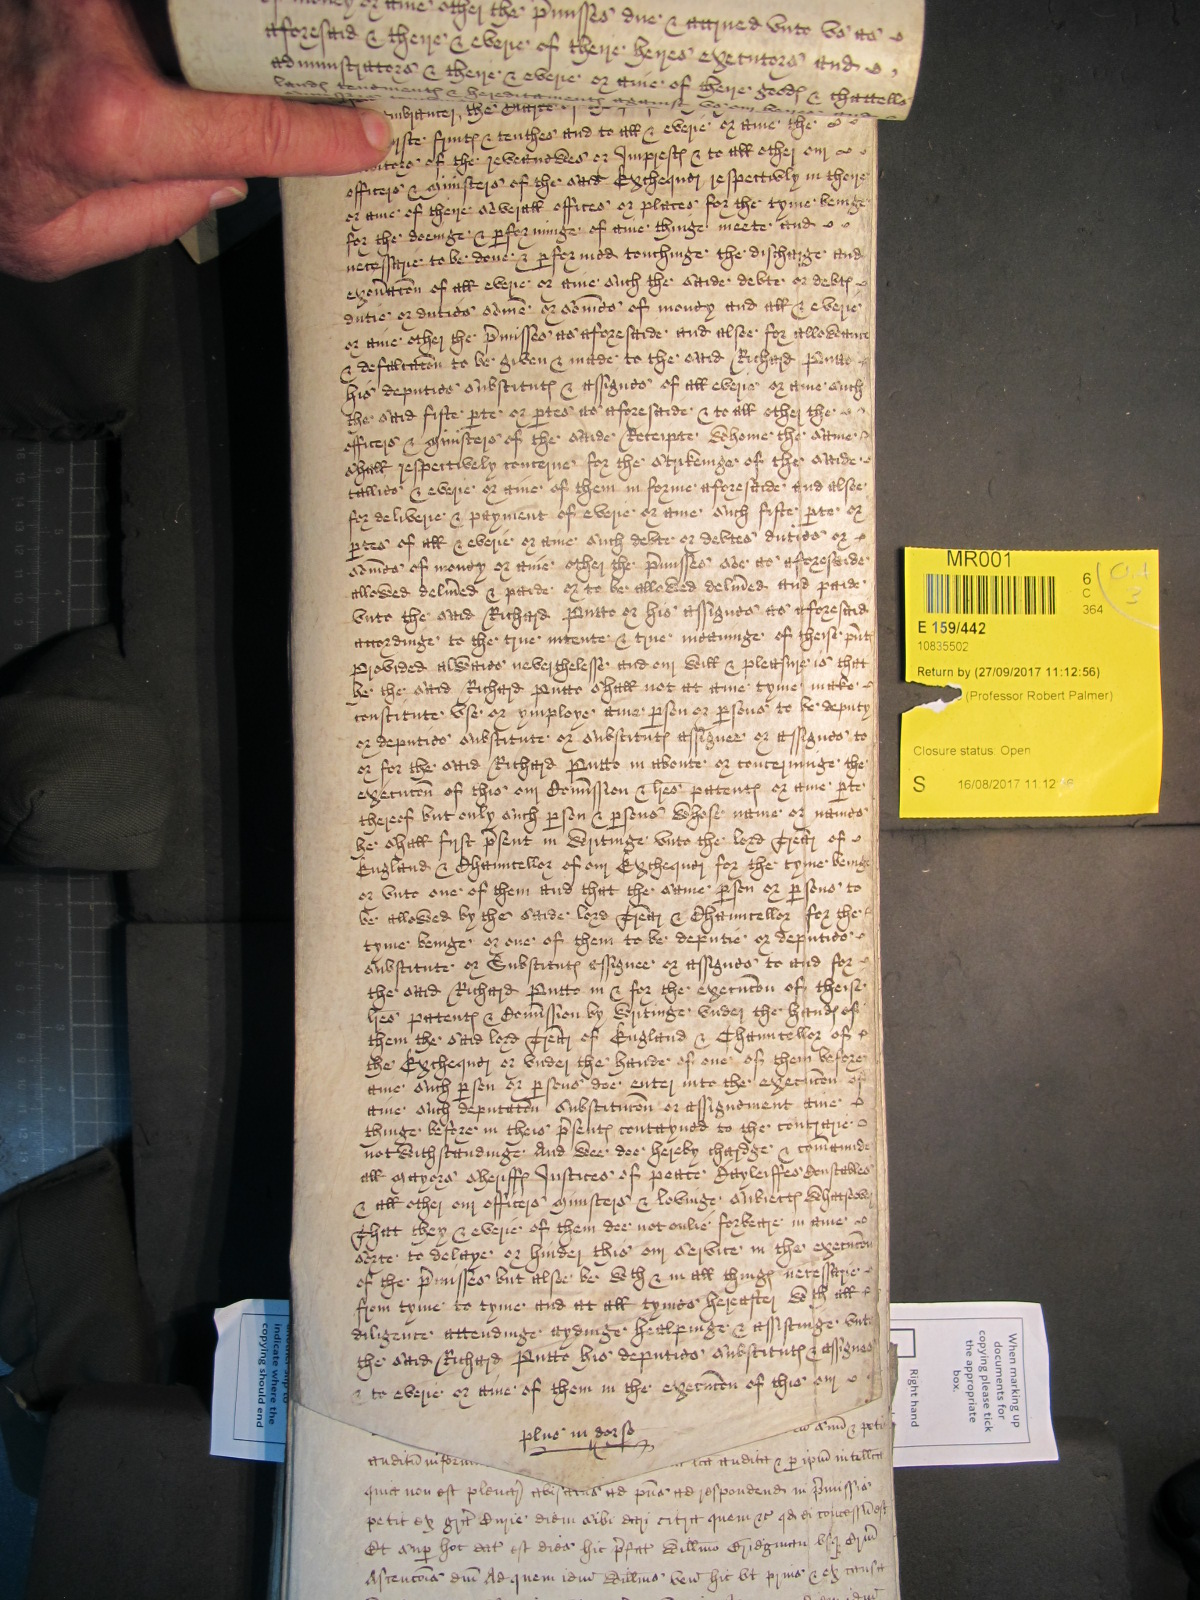 of money or anie other the p̄misses due & attained vnto vs as
aforesaid & theire & everie of theire heires executors and
administrators & theire & everie or anie of theire goodℓ & chattells
landℓ tenementℓ & hereditamentℓ against vs our heires and
the
firste fruitℓ & tenthes and to all & everie or anie the
of the revenewes or Imprestℓ & to all other our
officers & ministers of the said Exchequer respectively in theire
or anie of theire severall offices or places for the tyme beinge
for the doeinge & p̱forminge of anie thinge meete and
necessarie to be done & p̱formed touchinge the discharge and
exon̄acōn of all everie or anie such the saide debte or debtℓ
dutie or duties som̄e or som̄es of money and all & everie
or anie other the p̄misses as aforesaide and alsoe for allowance
& defalcacōn to be given & made to the said Richard Putto
his deputies substitutℓ & assignes of all everie or anie such
the said fifte p̱te or p̱tes as aforesaide & to all other the
officers & ministers of the saide Receipte whome the same
shall respectively concerne for the strikeinge of the saide
tallies & everie or anie of them in forme aforesaide and alsoe
for deliverie & payment of everie or anie such fifte p̱te or
p̱tes of all & everie or anie such debte or debtes duties or
som̄es of money or anie other the p̄misses soe as aforesaide
allowed deliūed & paide or to be allowed deliūed and paide
vnto the said Richard Putto or his assignes as aforesaid
accordinge to the true intente & true meaninge of theise p̄ntℓ
Provided alwaies neverthelesse and our will & pleasure is that
he the said Richard Putto shall not at anie tyme make
constitute vse or ymploye anie p̱son or p̱sons to be deputy
or deputies substitute or substitutℓ assignee or assignes to
or for the said Richard Putto in aboute or concerninge the
execucōn of this our Com̄ission & lr̄es patentℓ or anie p̱te
thereof but only such p̱son & p̱sons whose name or names
he shall first p̄sent in writinge vnto the lord Treār of
England & Chauncellor of our Exchequer for the tyme beinge
or vnto one of them and that the same p̱son or p̱sons to
be allowed by the saide lord Treār & Chauncellor for the
tyme beinge or one of them to be deputie or deputies
substitute or Substitutℓ assignee or assignes to and for
the said Richard Putto in & for the execucōn of theise
lr̄es patentℓ & Com̄ission by writinge vnder the handℓ of
them the said lord Treār of England & Chauncellor of
the Exchequer or vnder the hande of one of them before
anie such p̱son or p̱sons doe enter into the execucōn of
anie such deputacōn substitucōn or assignement anie
thinge before in theis p̄sentℓ contayned to the contrarie
notwithstandinge And wee doe hereby chardge & com̄aunde
all Mayors Sheriffℓ Justices of peace Bayleiffes Constables
& all other our officers ministers & lovinge subiectℓ whatsoever
That they & everie of them doe not onlie forbeare in anie
sorte to delaye or hinder this our service in the execucōn
of the p̄misses but alsoe be wth & in all thingℓ necessarie
from tyme to tyme and at all tymes hereafter wth all
diligence attendinge aydinge healpinge & assistinge vnto
the said Richard Putto his deputies substitutℓ & assignes
& to everie or anie of them in the execucōn of this our
plus in dorso
audita & p̱ ip̄m intellecta
quia non est plenar̄ ad p̄ns ad respondend in p̄missis
petit ex gr̄a Curie diem sibi dari citra quem &c qd ei concessū est
Et sup̱ hoc dat est dies hic p̄fat Willmo Cridgman vsq̱ Crm̄
Ascencōis dm̄ Ad quem idm̄ Willmus ven̄ hic vt prius & ex causa
MR001
6
C
364
E 159/442
10835502
Return by (27/09/2017 11:12:56)
(Professor Robert Palmer)
Closure status: Open
S
16/08/2017 11:12
indicate where the
copying should end
When marking up
documents for
copying please tick
the appropriate
box.
Right hand